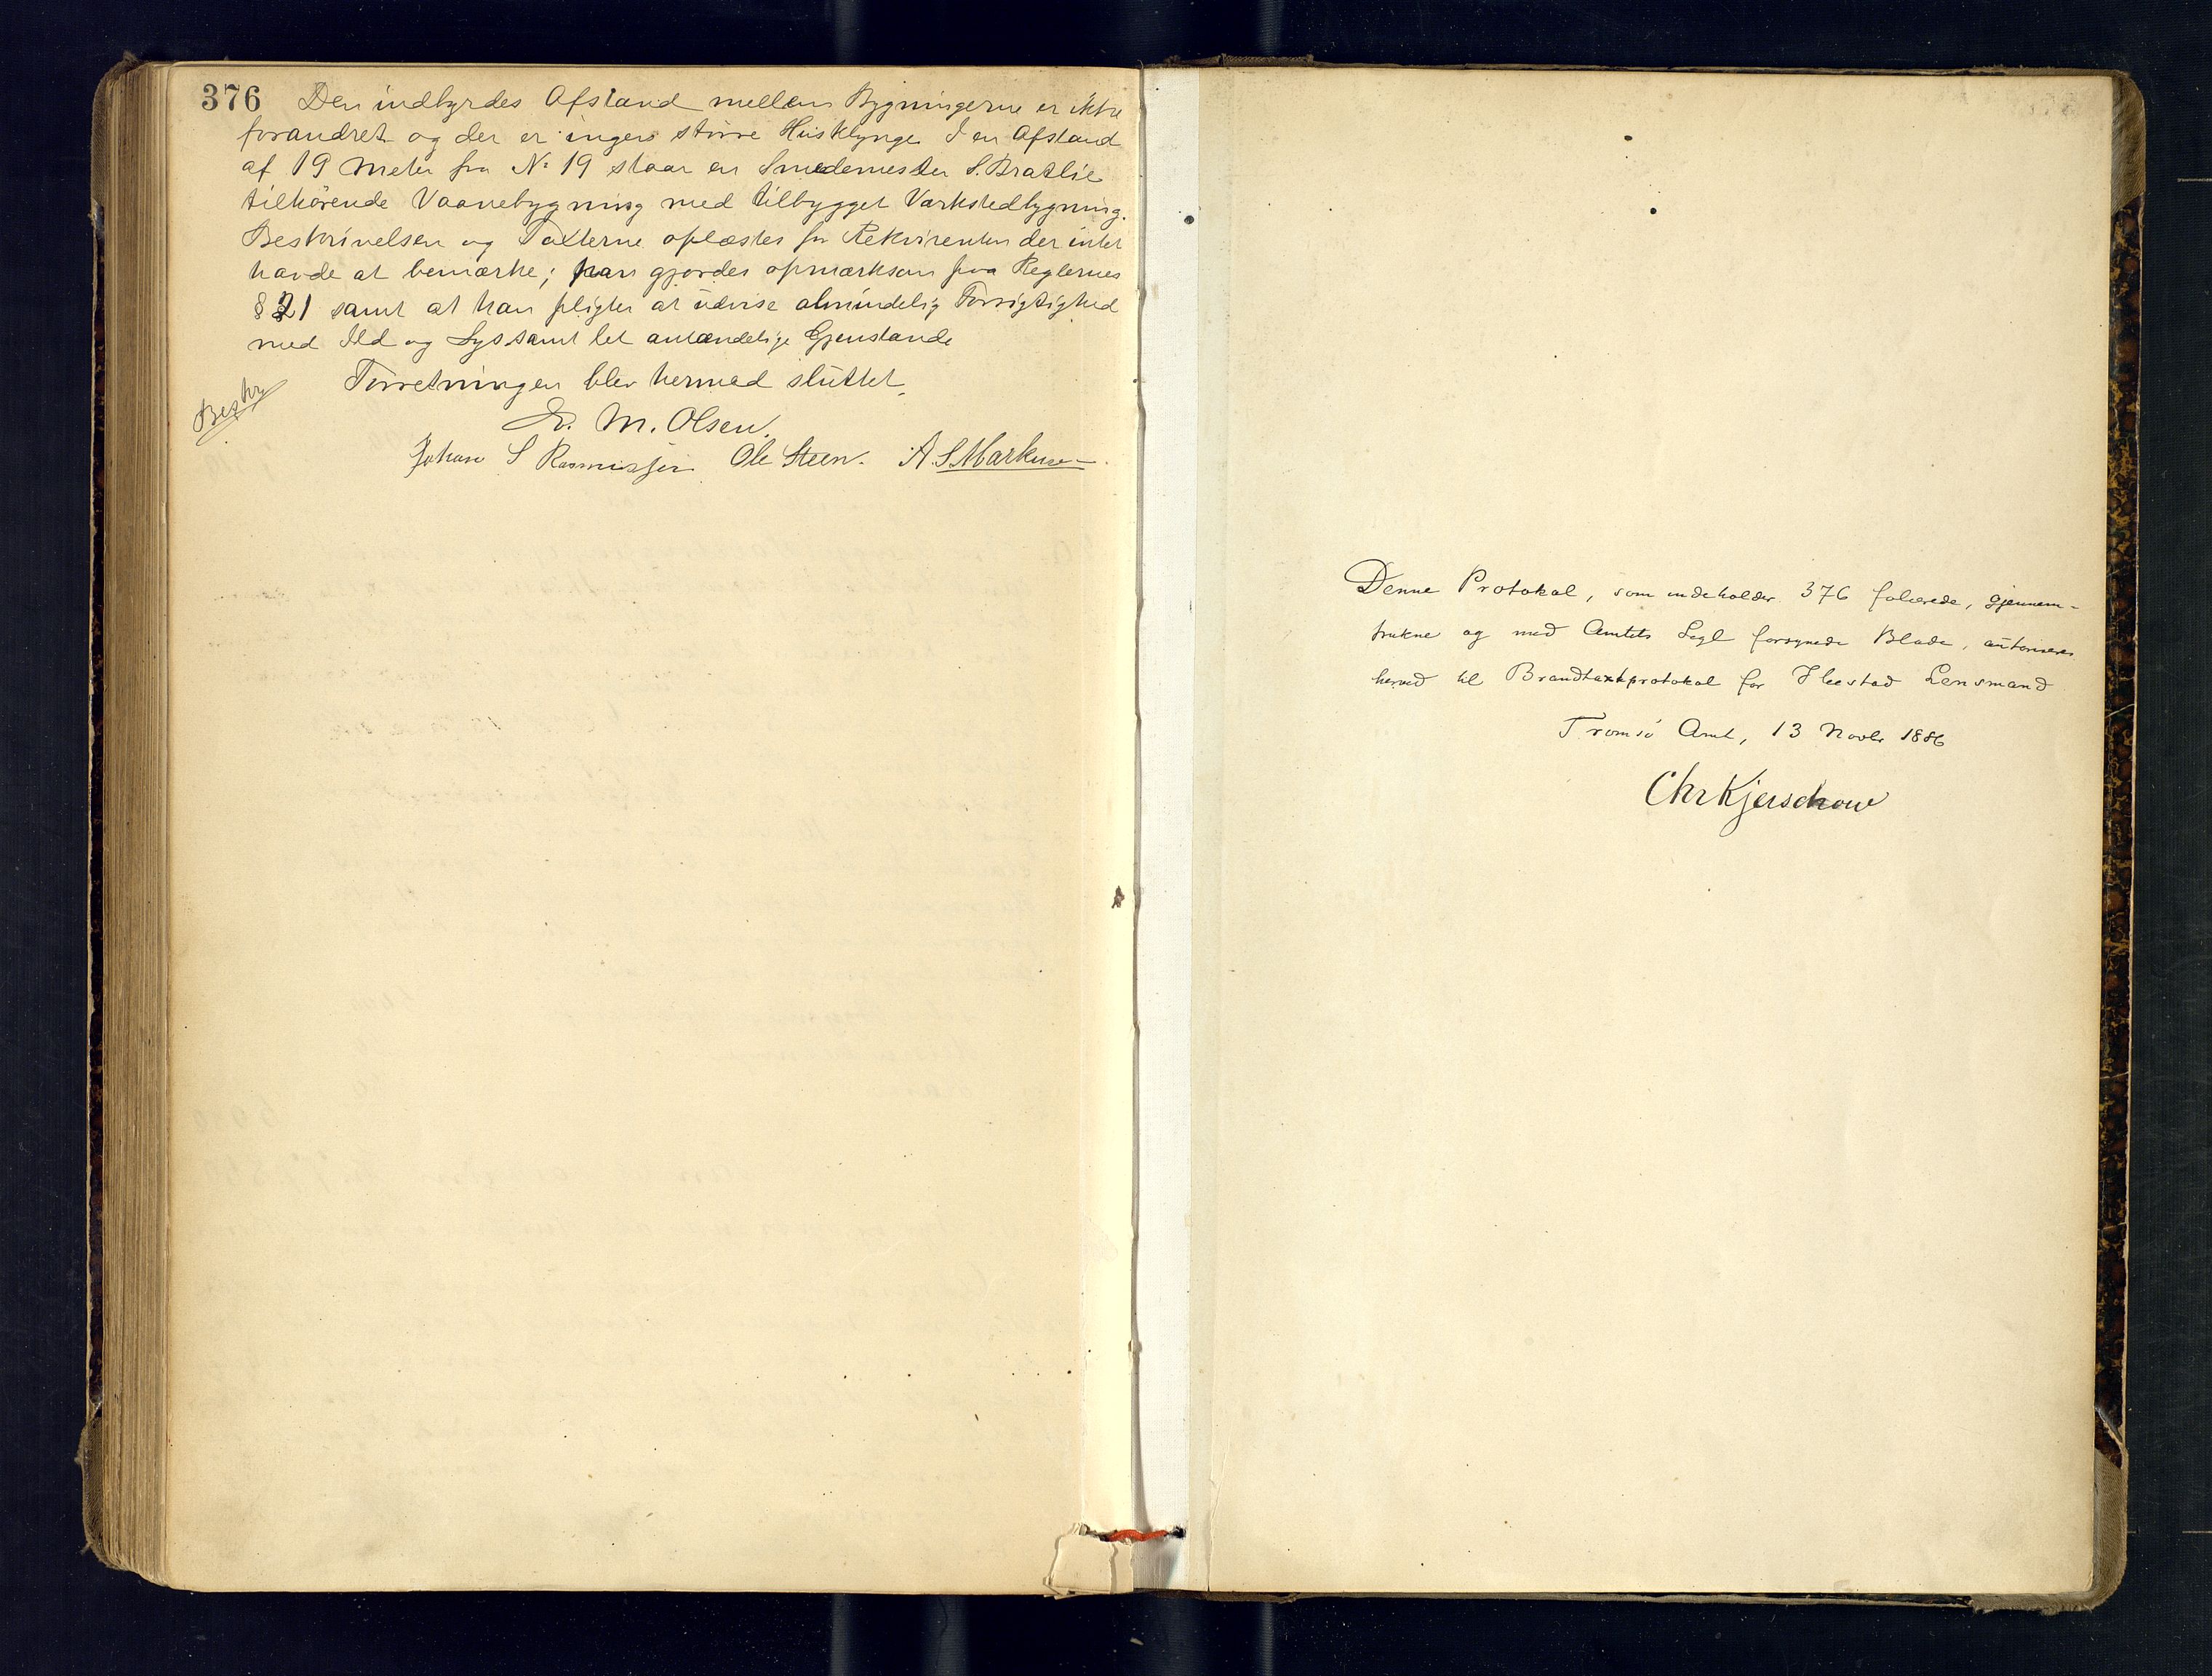 376 Den indbyrdes Afstand mellem Bygningerne er ikke
forandret og der er ingen större Husklynge I en Afstand
af 19 Meter fra No 19 staar en Smedemester S. Bratlie
tilhörende Vaanebygning med tilbygget Værkstedbygning.
Beskrivelsen og Taxterne oplæstes for Rekvirenten der intet
havde at bemærke; han gjordes opmærksom paa Reglernes
§ 21 samt at han pligter at udvise almindelig Forsigtighed
med Ild og Lys samt let antændelige Gjenstande
Forretningen blev hermed sluttet.
Beskr
M. Olsen.
Johan S Rasmussen Ole Steen. A S Markusen
Denne Protokol, som indeholder 376 folierede, gjennem-
trukne og med Amtets Segl forsynede Blade, autoriseres
herved til Brandtaxtprotokol for Ibestad Lensmand
Tromsö Amt, 13 Novbr 1886
Chr Kjerschow